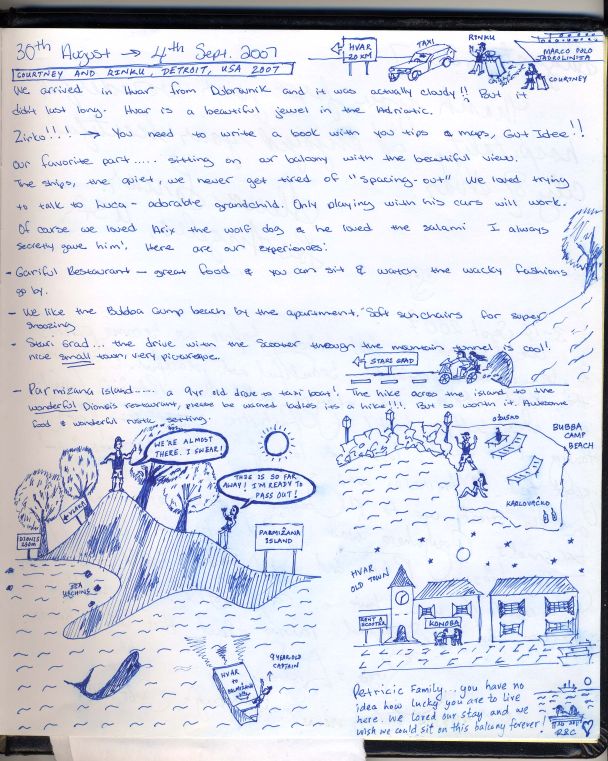 30th August → 4th Sept. 2007
COURTNEY AND RINKU, DETROIT, USA 2007
HVAR
20 KM
TAXI
RINKU
MARCO POLO
JADROLINIJA
COURTNEY
We arrived in Hvar from Dubrovnik and it was actually cloudy!! But it
didn't last long. Hvar is a beautiful jewel in the Adriatic.
Zirko!!! → You need to write a book with you tips & maps, Gut Idee!!
Our favorite part..... sitting on our balcony with the beautiful view.
The ships, the quiet, we never get tired of "spacing-out" We loved trying
to talk to Luca - adorable grandchild. Only playing with his cars will work.
Of carse we loved Arix the wolf dog & he loved the salami I always
secretly gave him!. Here are our experiences:
- Gariful Restaurant - great food & you can sit & watch the wacky fashions
go by.
- We like the Bubba Gump beach by the apartment. Soft sun chairs for super
snoozing
- Stari Grad... the drive with the scooter through the mountain tunnel is cool!
nice small town, very picturesque.
STARI GRAD
- Parmizana island..... a 9yr old drove to taxi boat!. The hike across the island to the
wonderful Dionis restaurant, please be warned ladies its a hike!!!. But so worth it. Awesome
food & wonderful rustic setting.
WE'RE ALMOST
THERE. I SWEAR!
THIS IS SO FAR
AWAY! I'M READY TO
PASS OUT!
VLAKA
DIONIS
PARMIŽANA
ISLAND
SEA
URCHINS
HVAR
TO
PARMIZANA
9 YEAR OLD
CAPTAIN
OŽUJSKO
BUBBA
CAMP
BEACH
KARLOVAČKO
HVAR
OLD TOWN
RENT A
SCOOTER
KONOBA
Petricic Family... you have no
idea how lucky you are to live
here. We loved our stay and we
wish we could sit on this balcony forever!
R&C